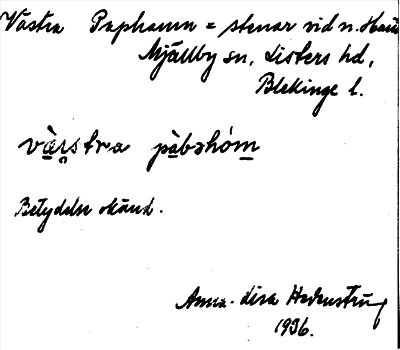 Västra Paphamn = stenar vid n. Hanö
Mjällby sn, Listers hd,
Blekinge l.
vä̀rstra pàbəhóm
Betydelse okänd.
Anna-Lisa Hedenstrüg
1936.